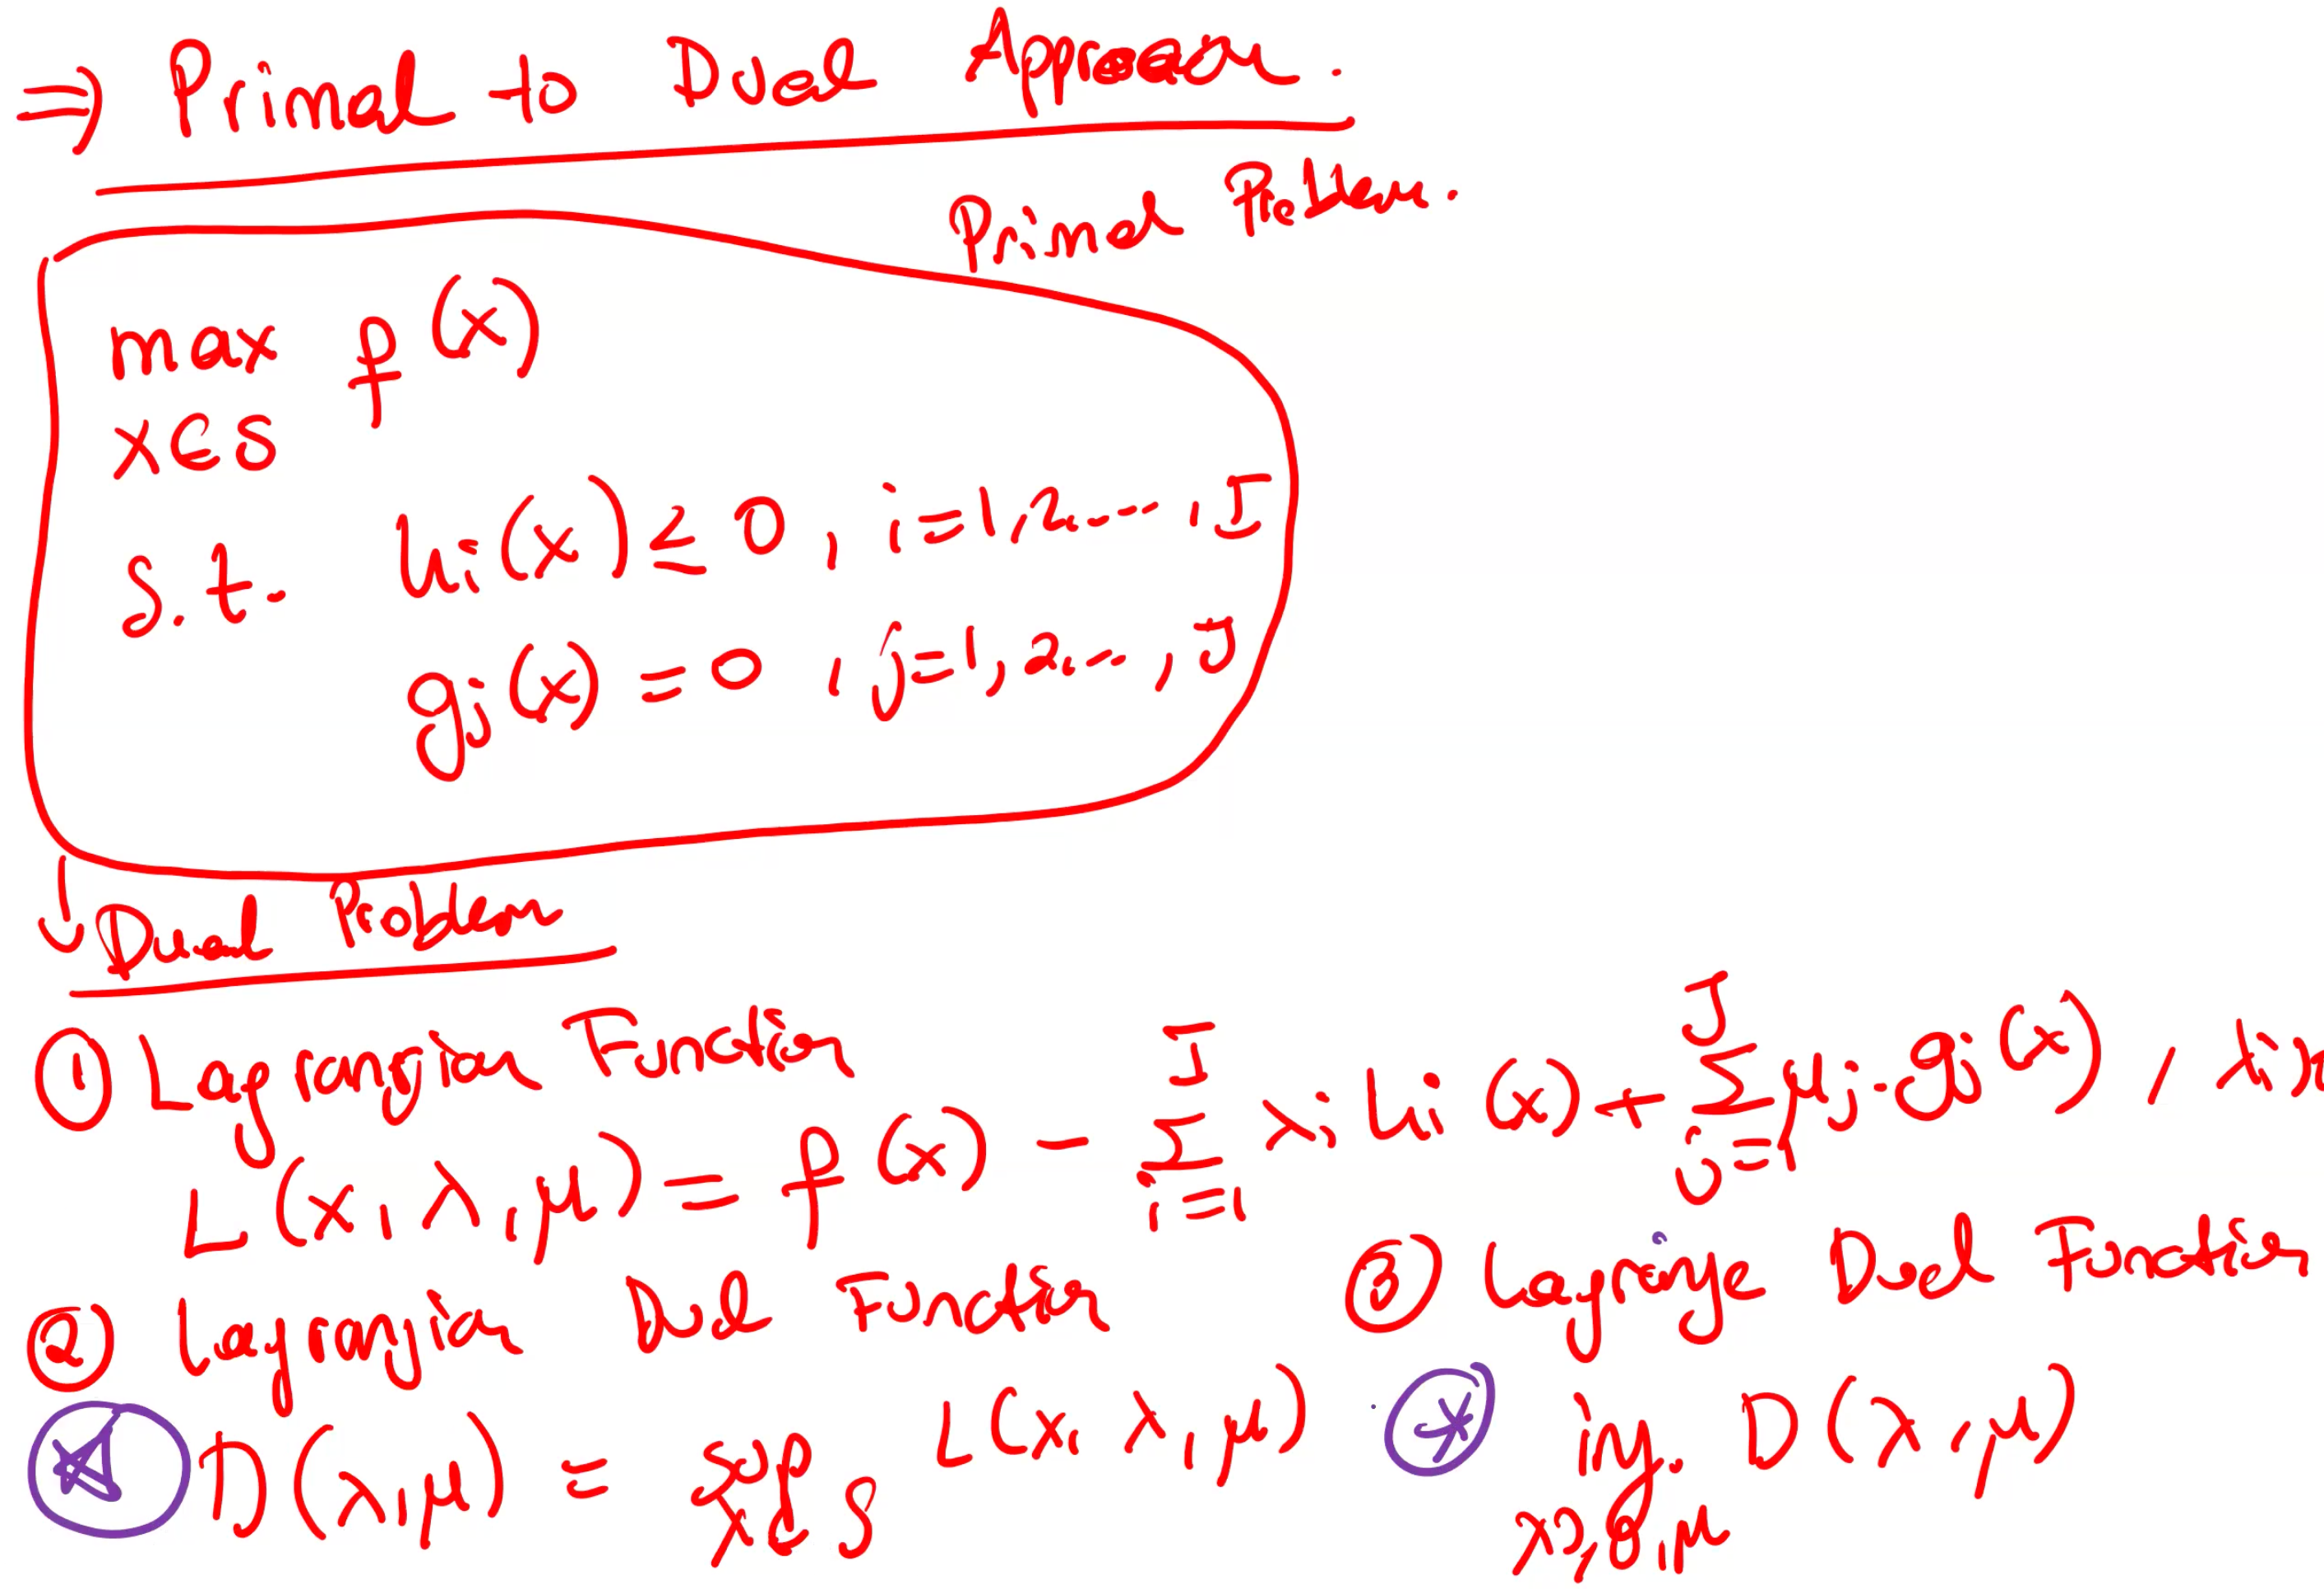 → Primal to Dual Approach.
Primal Problem.
max f(x)
x∈S
s.t. hi(x) ≤ 0, i=1,2...., I
gj(x) = 0, j=1,2..., J
↳ Dual Problem
① Lagrangian Function
L(x, λ, μ) = f(x) - Σ_{i=1}^{I} λi hi(x) + Σ_{j=1}^{J} μj·gj(x), λi ≥
② Lagrangian Dual Function
D(λ, μ) = sup_{x∈S} L(x, λ, μ)
③ Lagrange Dual Function
inf. D(λ, μ)
λ≥0, μ